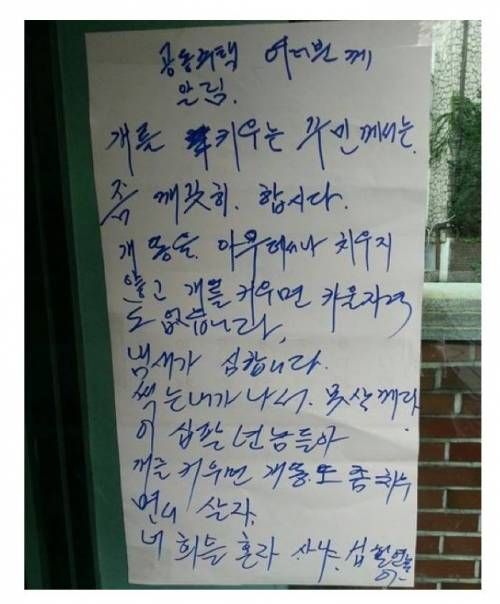 공동주택 여러분께
알림.
개를 키우는 주민께서는.
좀 깨끗히. 합시다.
개 똥을. 아무데나 치우지
않고 개를 키우면 키울자격
도 없습니다.
냄새가 심합니다.
썩는내가 나서. 못살께다
이 십팔년놈들아
개를 키우면 개똥.또 좀 치우
면서 살자.
너희들 혼라 사냐. 십팔연놈